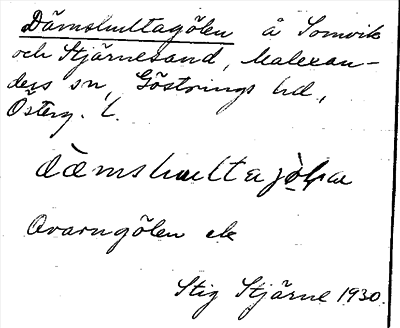 Dämshultagölen å Somvik
och Stjärnesand, Malexan-
ders sn, Göstrings hd,
Österg. l.
Kvarngölen ek
Stig Stjärne 1930.